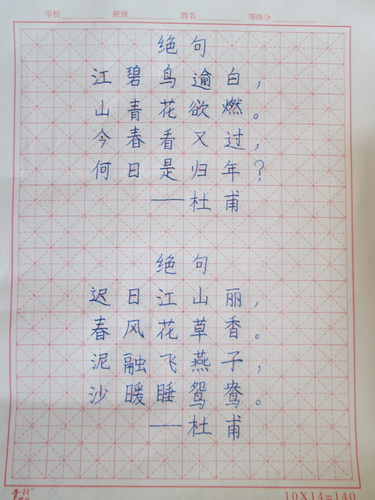 学校 班级 姓名 等级分
绝句
江碧鸟逾白，
山青花欲燃。
今春看又过，
何日是归年？
——杜甫
绝句
迟日江山丽，
春风花草香。
泥融飞燕子，
沙暖睡鸳鸯。
——杜甫
10X14=140